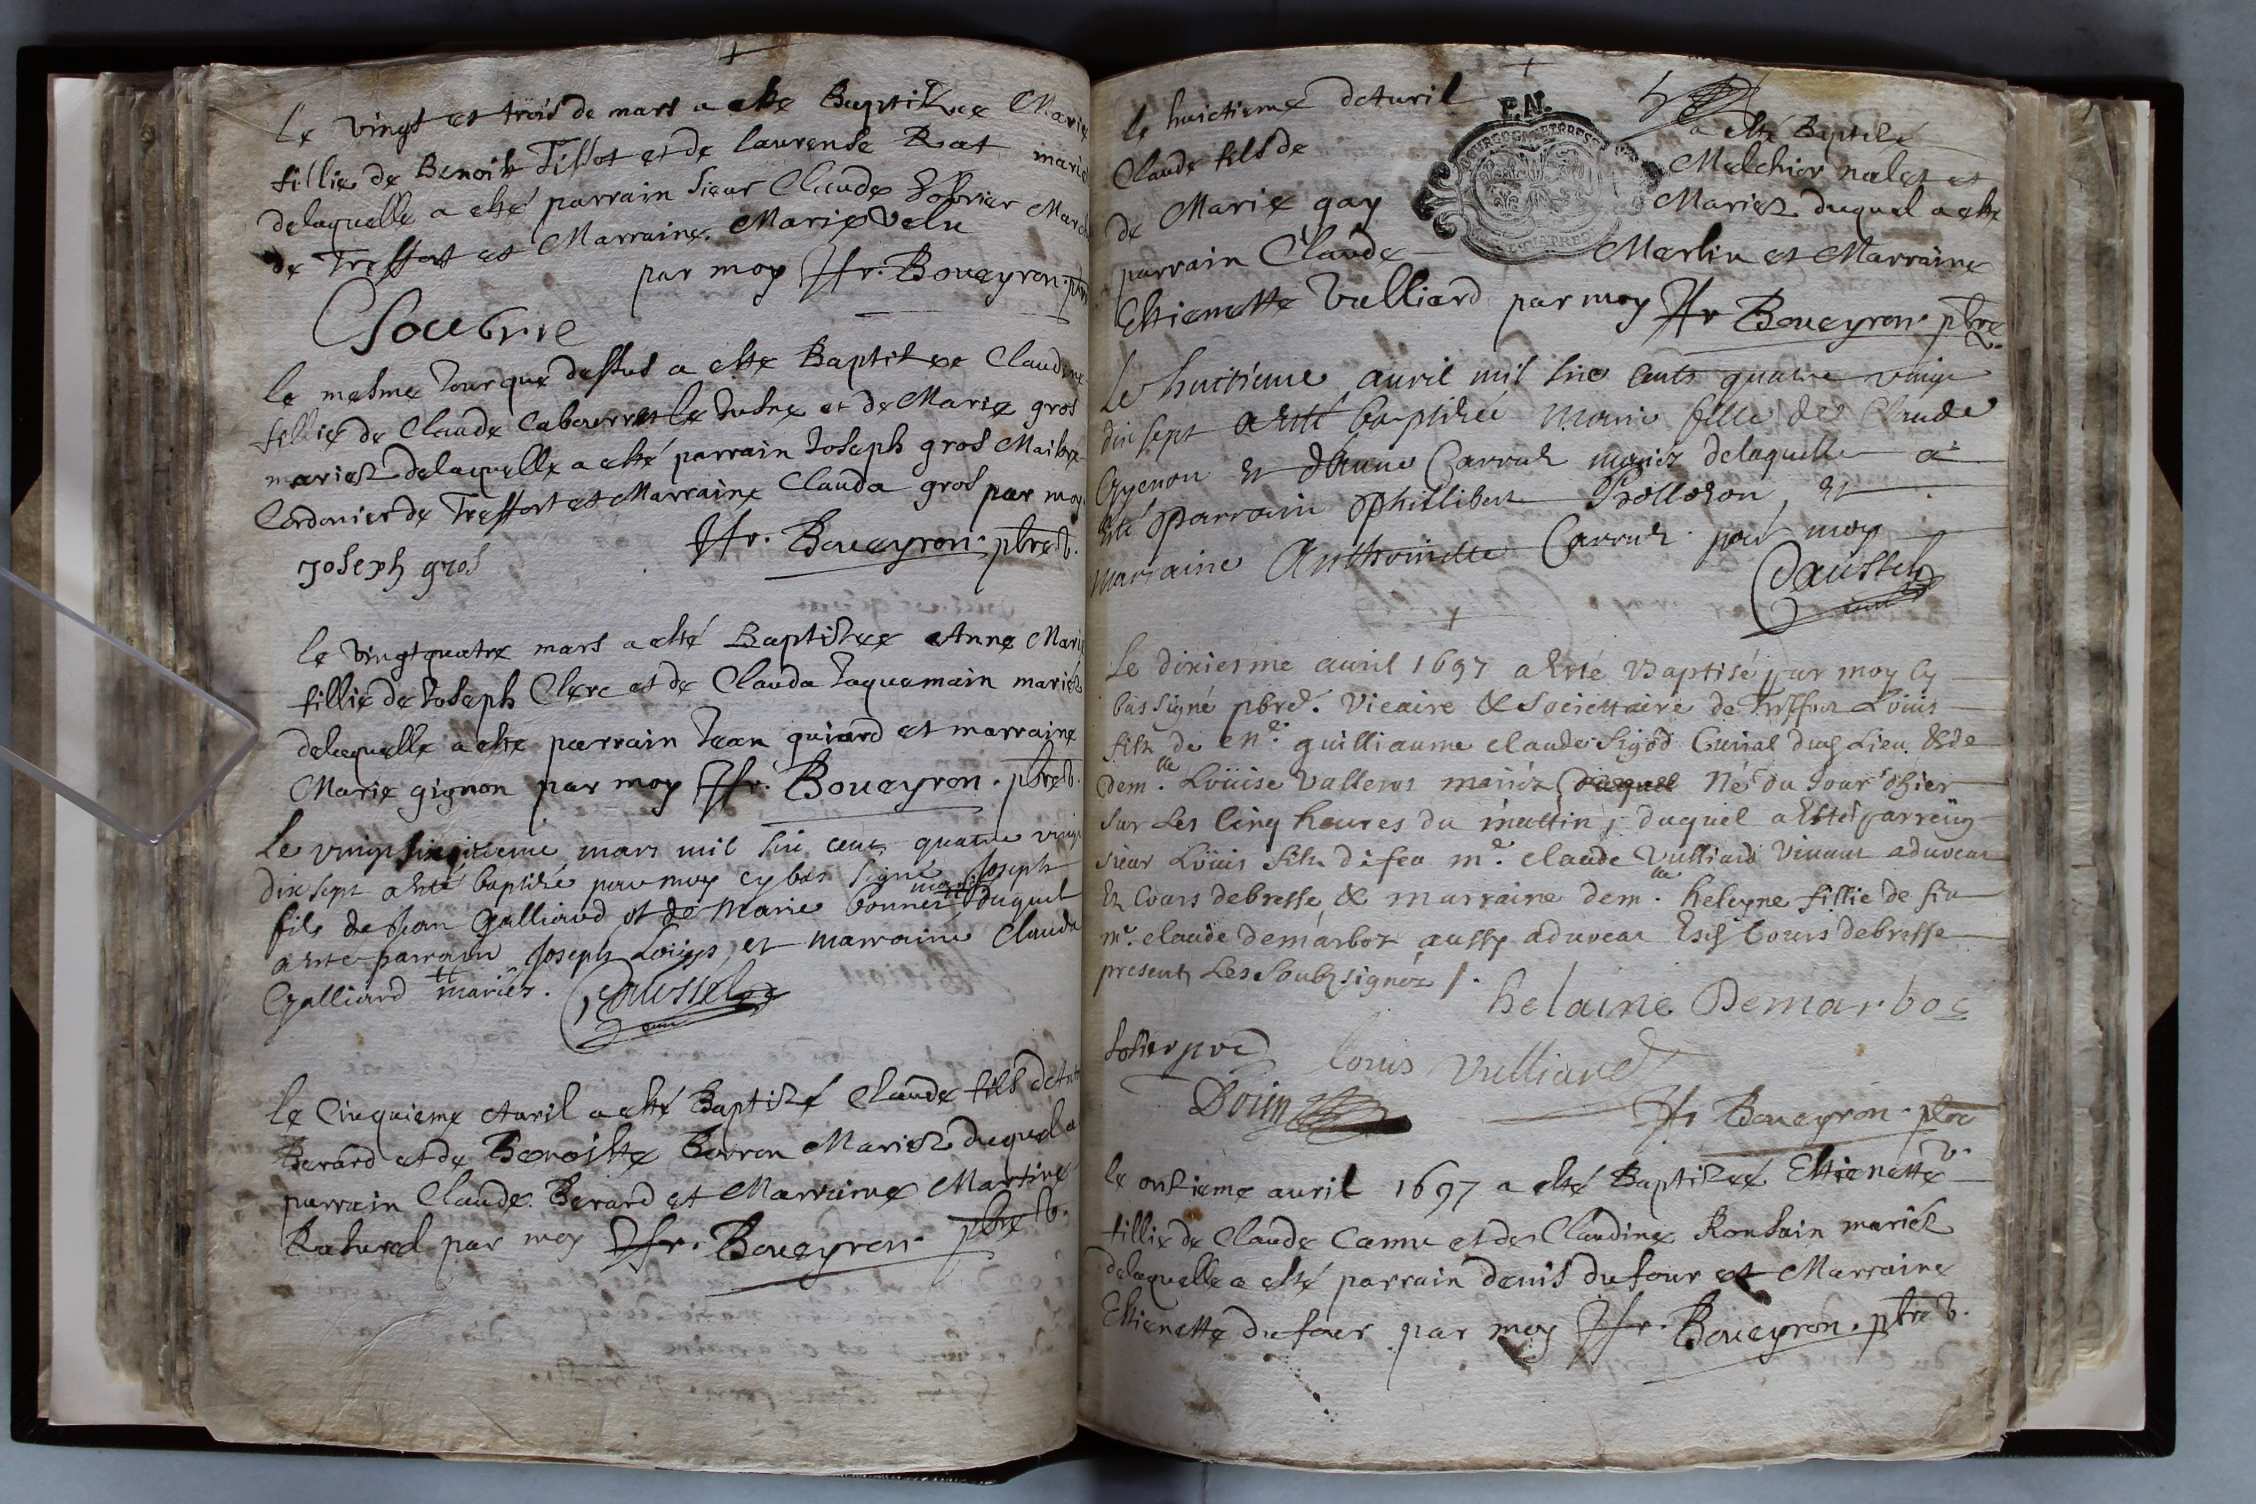 Le vingt et trois de mars a esté Baptisée Marie
fillie de Benoist Tissot et de laurense Rat marie
delaquelle a esté parrain sieur Claude March
de Treffort et Marraine Marie Velu
par moy Fr. Boueyron. ptre
Le mesme Jour que dessus a esté Baptisée Claudine
fillie de Claude le Jusne et de Marie gros
mariez delaquelle a esté parrain Joseph gros Maistre
Cordonier de Treffort et Marraine Clauda gros par moy
Fr. Boueyron. pbre v.
Joseph gros
le vingt quatre mars a esté Baptisée Anne Marie
fillie de Joseph Clerc et de Clauda Jaquemain mariez
delaquelle a esté parrain Jean guiard et marraine
Marie gignon par moy Fr. Boueyron. pbre v.
Le vingt mars mil six cens quatre vingt
dix sept a esté baptisé par moy cy bas signé Joseph
fils de Jean Galliard et de Marie bonnet mariez duquel
a esté parrain Joseph Loüys et marraine Clauda
Galliard mariés. Daussel
le Cinquieme Avril a esté Baptisé Claude fils de Ant
Berard et de Benoiste Borron Mariez duquel a
parrain Claude Berard et Marraine Martine
par moy Fr. Boueyron. pbre v.
le huictieme de Avril a esté Baptisé
Claude fils de Melchior nalet et
de Marie gay Mariez duquel a esté
parrain Claude Merlin et Marraine
Estienette Vulliard par moy Fr Boueyron. pbre
v.
Le huitieme auril mil six cents quatre vingt
dix sept a esté baptisée Marie fille de Claude
Gyenon et d'Anne Carruz mariez delaquelle a
esté parrain Phillibert et
marraine Anthoinette Carruz par moy
Daussel
Le dixiesme auril 1697 a esté Baptisé par moy Cy
bas signé pbre. Vicaire & Societtaire de Treffort Loüis
fils de me. guilliaume claude Sigod Curial dud Lieu & de
demlle. Loüise Valleros mariéz duquel Né du Jour d'hier
sur Les Cinq heures du mattin, duquel a Esté parreing
sieur Loüis fils de feu me. claude Vulliard Viuant aduocat
Es Cours de bresse & marraine demlle. heleyne fillie de feu
mr. claude demarboz aussy aduocat Esd Cours de bresse
presents Les Soubsignéz /.
helaine Demarbos
louis Vulliard
Fr Boueyron. pbre
v.
le onzieme auril 1697 a esté Baptizée Estienette
fillie de Claude Camu et de Claudine Ronsain mariéz
delaquelle a esté parrain denis dufour et Marraine
Estienette dufour par moy Fr. Boueyron. pbre v.